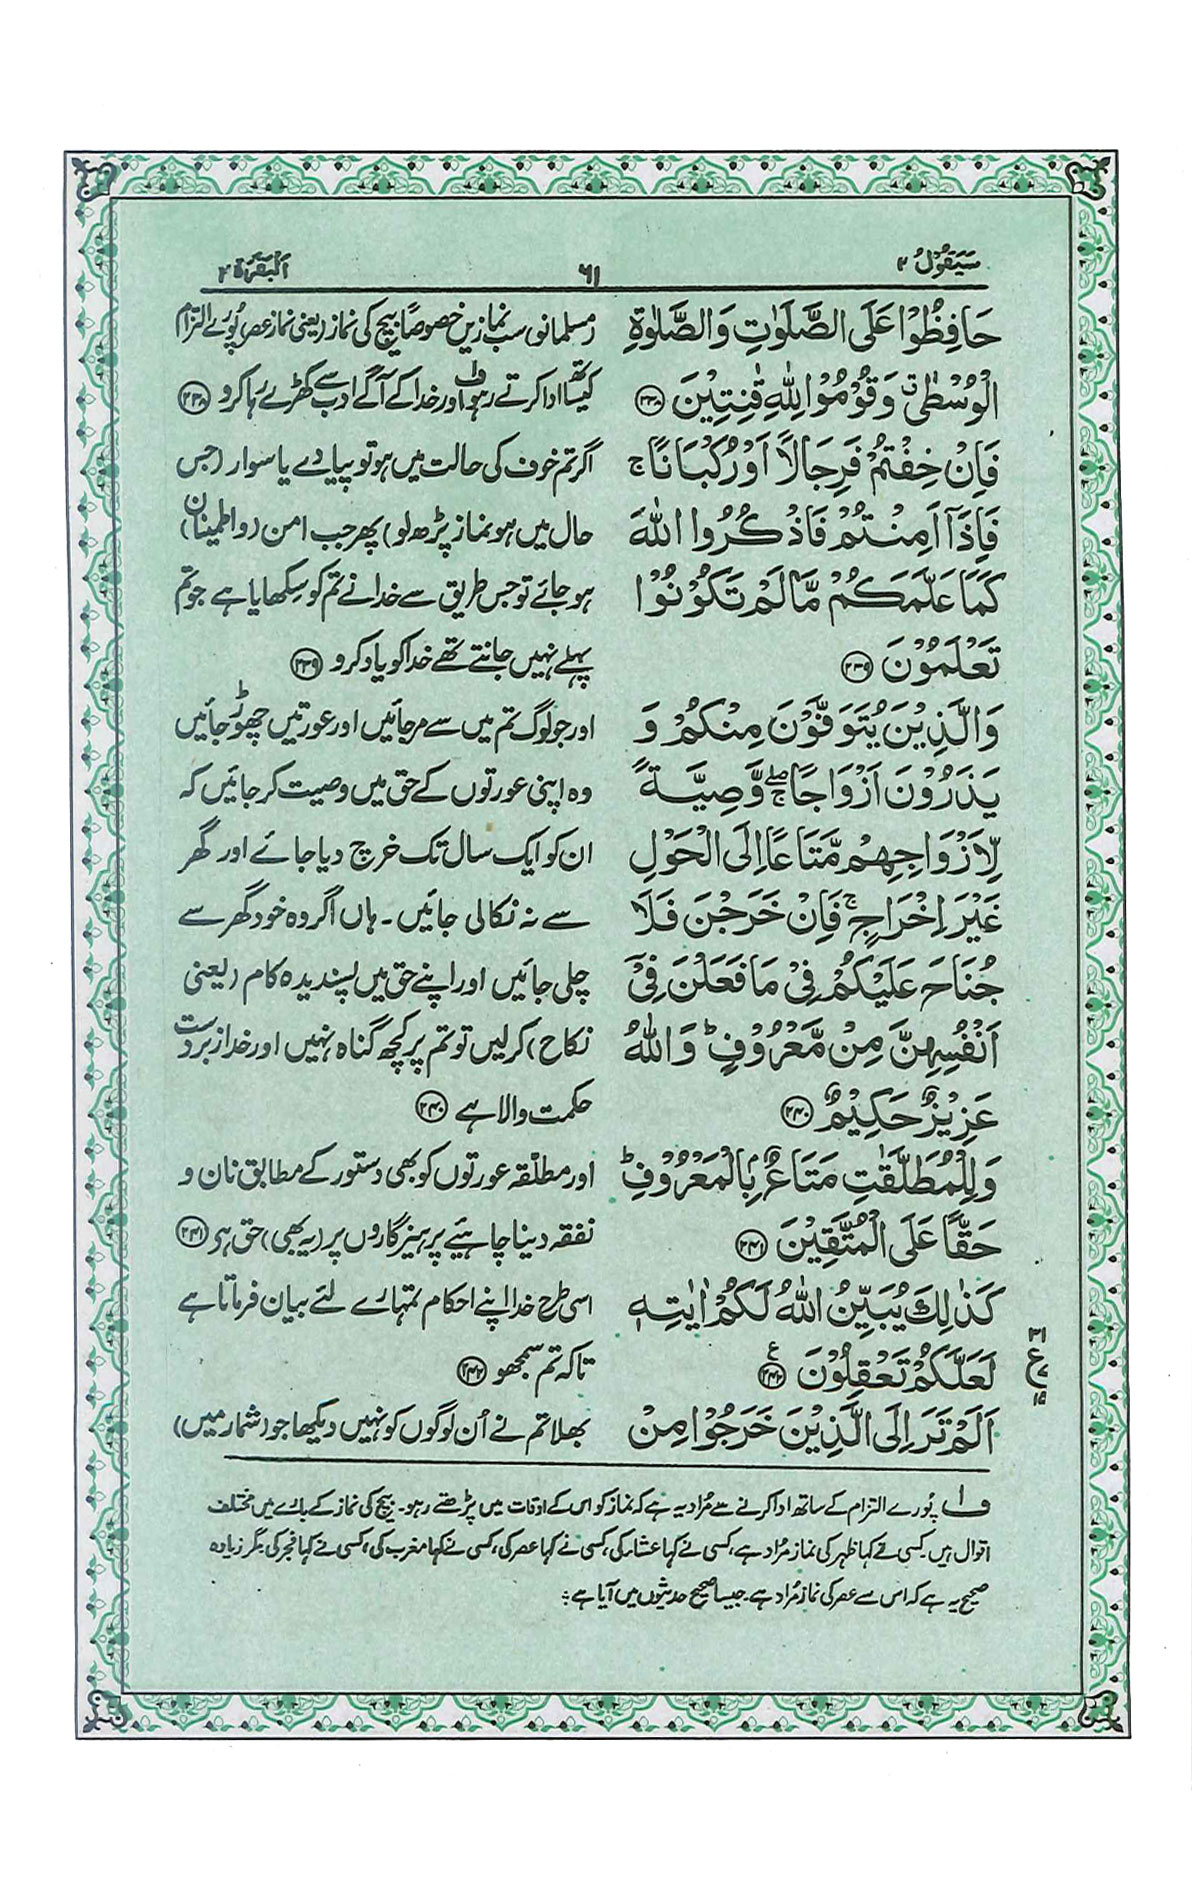 سَيَقُوْلُ ٢
٦١
اَلْبَقَرَة ٢
حَافِظُوْا عَلَى الصَّلَوٰتِ وَالصَّلٰوةِ
الْوُسْطٰىۗ وَقُوْمُوْا لِلّٰهِ قٰنِتِيْنَ ﴿٢٣٨﴾
فَاِنْ خِفْتُمْ فَرِجَالًا اَوْ رُكْبَانًاۚ
فَاِذَآ اَمِنْتُمْ فَاذْكُرُوا اللّٰهَ
كَمَا عَلَّمَكُمْ مَّا لَمْ تَكُوْنُوْا
تَعْلَمُوْنَ ﴿٢٣٩﴾
وَالَّذِيْنَ يُتَوَفَّوْنَ مِنْكُمْ وَ
يَذَرُوْنَ اَزْوَاجًاۚۖ وَّصِيَّةً
لِّاَزْوَاجِهِمْ مَّتَاعًا اِلَى الْحَوْلِ
غَيْرَ اِخْرَاجٍۚ فَاِنْ خَرَجْنَ فَلَا
جُنَاحَ عَلَيْكُمْ فِيْ مَا فَعَلْنَ فِيْٓ
اَنْفُسِهِنَّ مِنْ مَّعْرُوْفٍؕ وَاللّٰهُ
عَزِيْزٌ حَكِيْمٌ ﴿٢٤٠﴾
وَلِلْمُطَلَّقٰتِ مَتَاعٌۢ بِالْمَعْرُوْفِؕ
حَقًّا عَلَى الْمُتَّقِيْنَ ﴿٢٤١﴾
كَذٰلِكَ يُبَيِّنُ اللّٰهُ لَكُمْ اٰيٰتِهٖ
لَعَلَّكُمْ تَعْقِلُوْنَ ﴿٢٤٢﴾ ع
اَلَمْ تَرَ اِلَى الَّذِيْنَ خَرَجُوْا مِنْ
(مسلمانو) سب نمازیں خصوصاً بیچ کی نماز (یعنی نماز عصر) پُورے التزام
کیساتھ ادا کرتے رہو ف۱ اور خدا کے آگے ادب سے کھڑے رہا کرو ﴿۲۳۸﴾
اگر تم خوف کی حالت میں ہو تو پیادے یا سوار (جس
حال میں ہو نماز پڑھ لو) پھر جب امن (و اطمینان)
ہو جائے تو جس طریق سے خدا نے تم کو سکھایا ہے جو تم
پہلے نہیں جانتے تھے خدا کو یاد کرو ﴿۲۳۹﴾
اور جو لوگ تم میں سے مر جائیں اور عورتیں چھوڑ جائیں
وہ اپنی عورتوں کے حق میں وصیت کر جائیں کہ
ان کو ایک سال تک خرچ دیا جائے اور گھر
سے نہ نکالی جائیں۔ ہاں اگر وہ خود گھر سے
چلی جائیں اور اپنے حق میں پسندیدہ کام (یعنی
نکاح) کر لیں تو تم پر کچھ گناہ نہیں اور خدا زبردست
حکمت والا ہے ﴿۲۴۰﴾
اور مطلقہ عورتوں کو بھی دستور کے مطابق نان و
نفقہ دینا چاہیے پرہیزگاروں پر (یہ بھی) حق ہے ﴿۲۴۱﴾
اسی طرح خدا اپنے احکام تمہارے لئے بیان فرماتا ہے
تاکہ تم سمجھو ﴿۲۴۲﴾
بھلا تم نے اُن لوگوں کو نہیں دیکھا جو (شمار میں)
٣١
ع
١٥
ف۱ پُورے التزام کے ساتھ ادا کرنے سے مُراد یہ ہے کہ نماز کو اس کے اوقات میں پڑھتے رہو۔ بیچ کی نماز کے بارے میں مختلف
اقوال ہیں کسی نے کہا ظہر کی نماز مُراد ہے، کسی نے کہا عشاء کی، کسی نے کہا عصر کی، کسی نے کہا مغرب کی، کسی نے کہا فجر کی مگر زیادہ
صحیح یہ ہے کہ اس سے عصر کی نماز مُراد ہے۔ جیسا صحیح حدیثوں میں آیا ہے